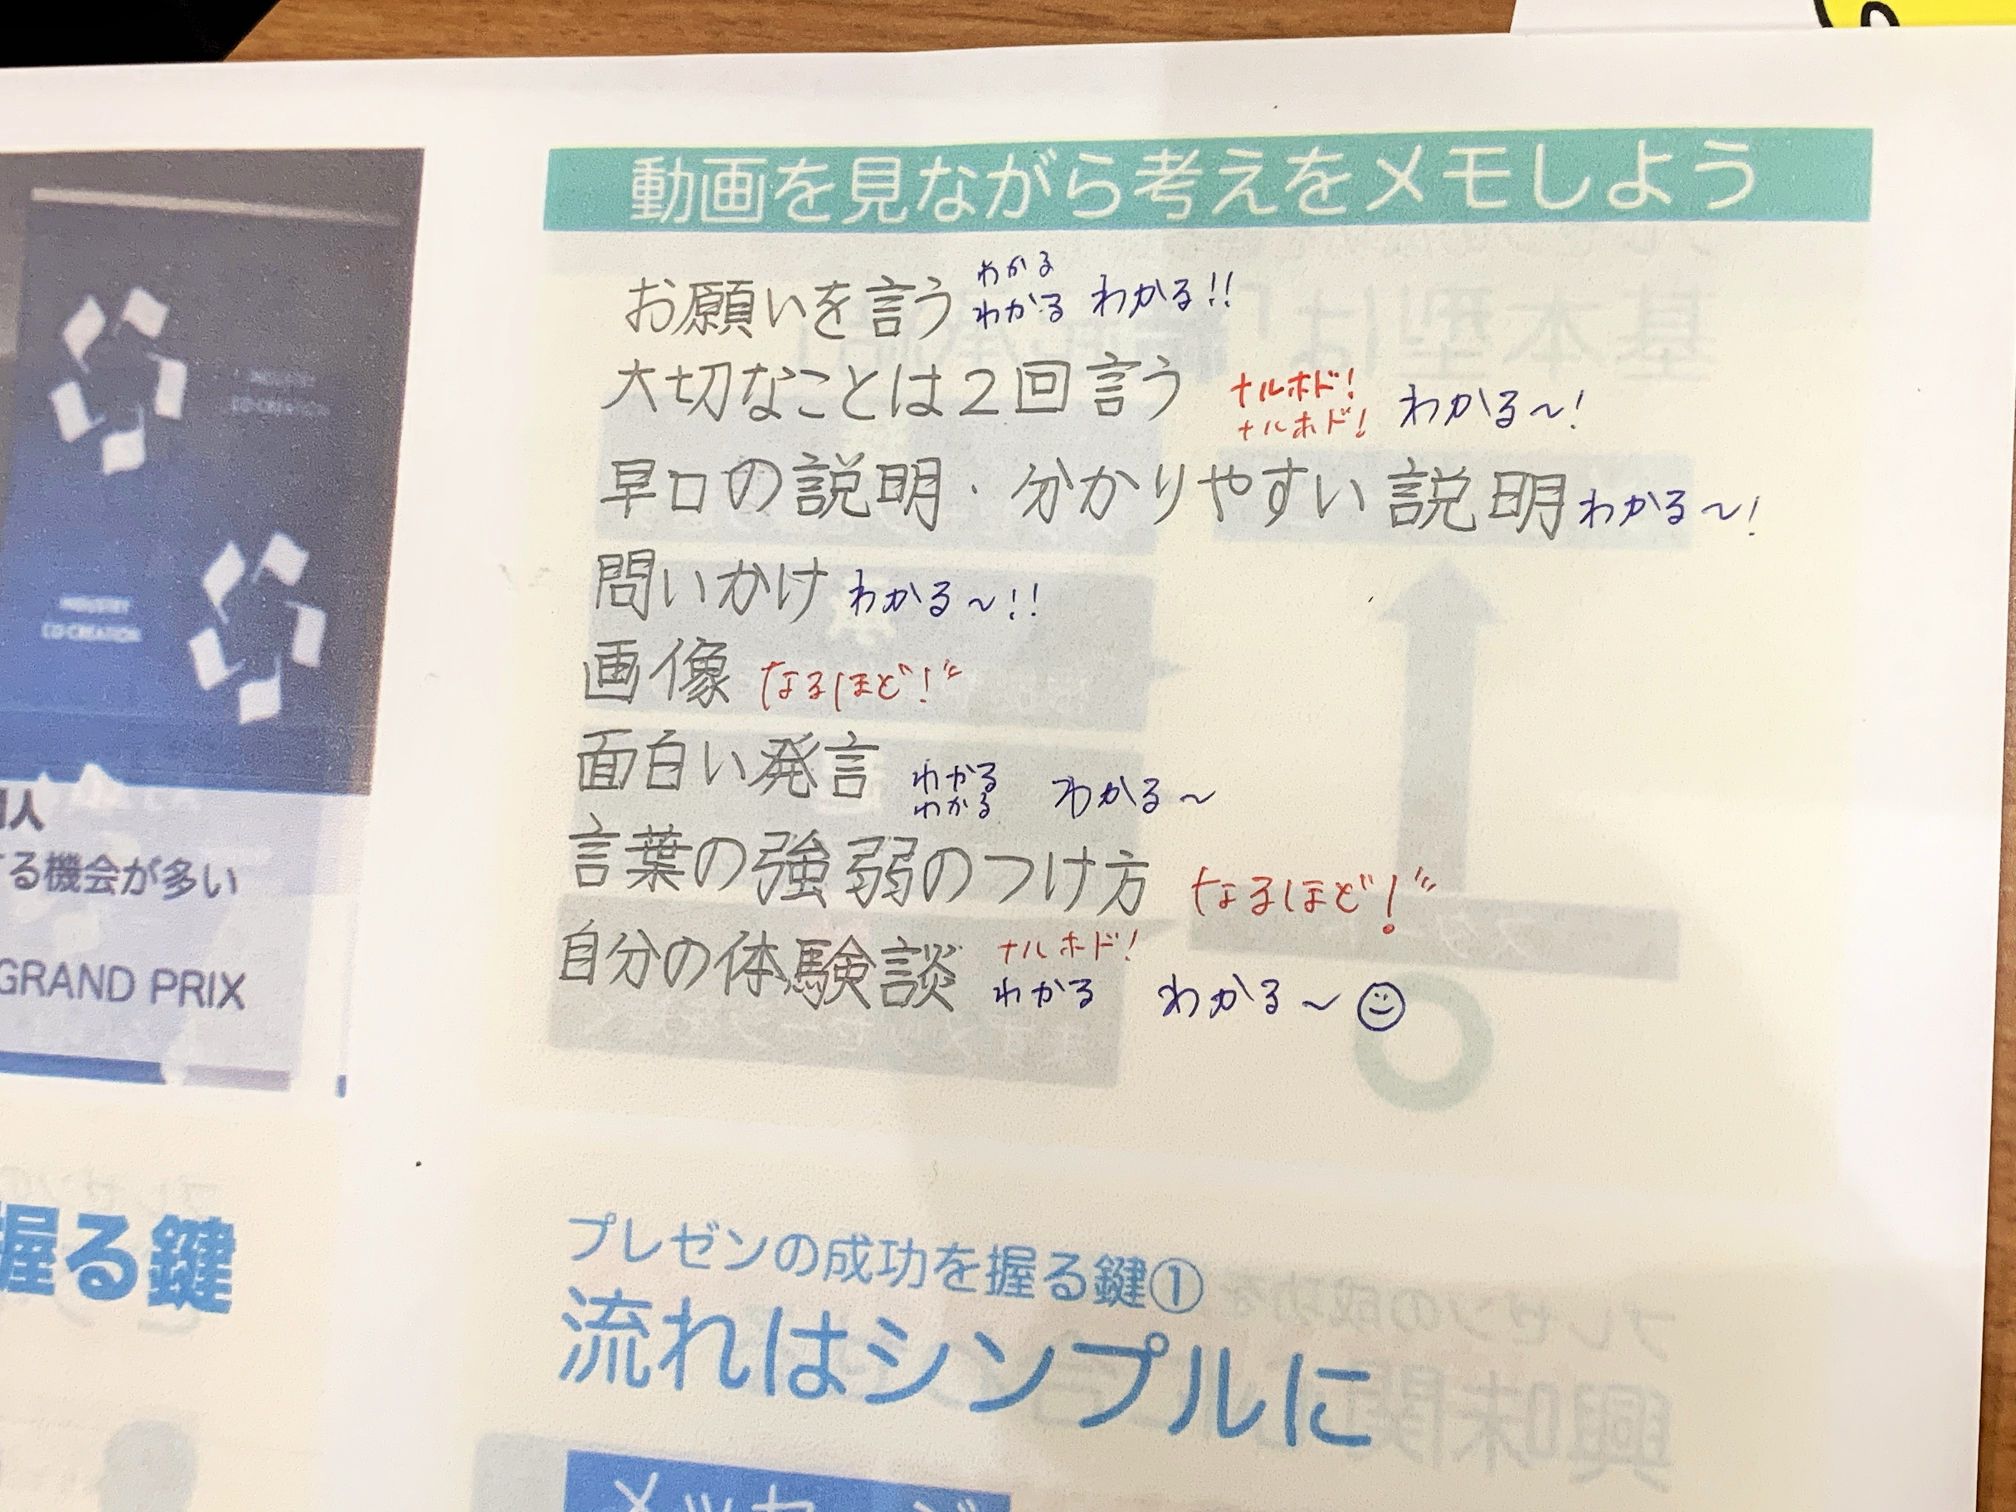 動画を見ながら考えをメモしよう
お願いを言う わかる わかる わかる!!
大切なことは2回言う ナルホド! ナルホド! わかる〜!
早口の説明・分かりやすい説明 わかる〜!
問いかけ わかる〜!!
画像 なるほど!
面白い発言 わかる わかる わかる〜
言葉の強弱のつけ方 なるほど!
自分の体験談 ナルホド! わかる わかる〜
プレゼンの成功を握る鍵①
流れはシンプルに
メッセージ
INDUSTRY
CO-CREATION
INDUSTRY
CO-CREATION
人
する機会が多い
GRAND PRIX
握る鍵